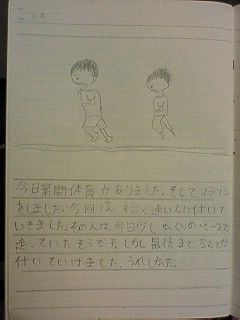 今日業間体育がありました。そしてマラソン
をしました。今回は、すごく速い人に付いて
いきました。その人は、今日少しゆっくりのペースで
走っていたそうです。しかし最後までなんとか
付いていけました。うれしかった。